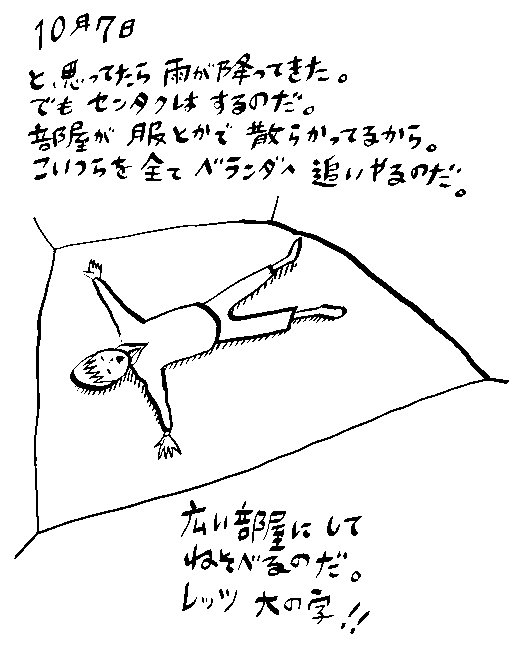 10月7日
と、思ってたら 雨が降ってきた。
でも センタクは するのだ。
部屋が 服とかで 散らかってるから。
こいつらを 全て ベランダへ 追いやるのだ。
広い部屋にして
ねそべるのだ。
レッツ 大の字!!